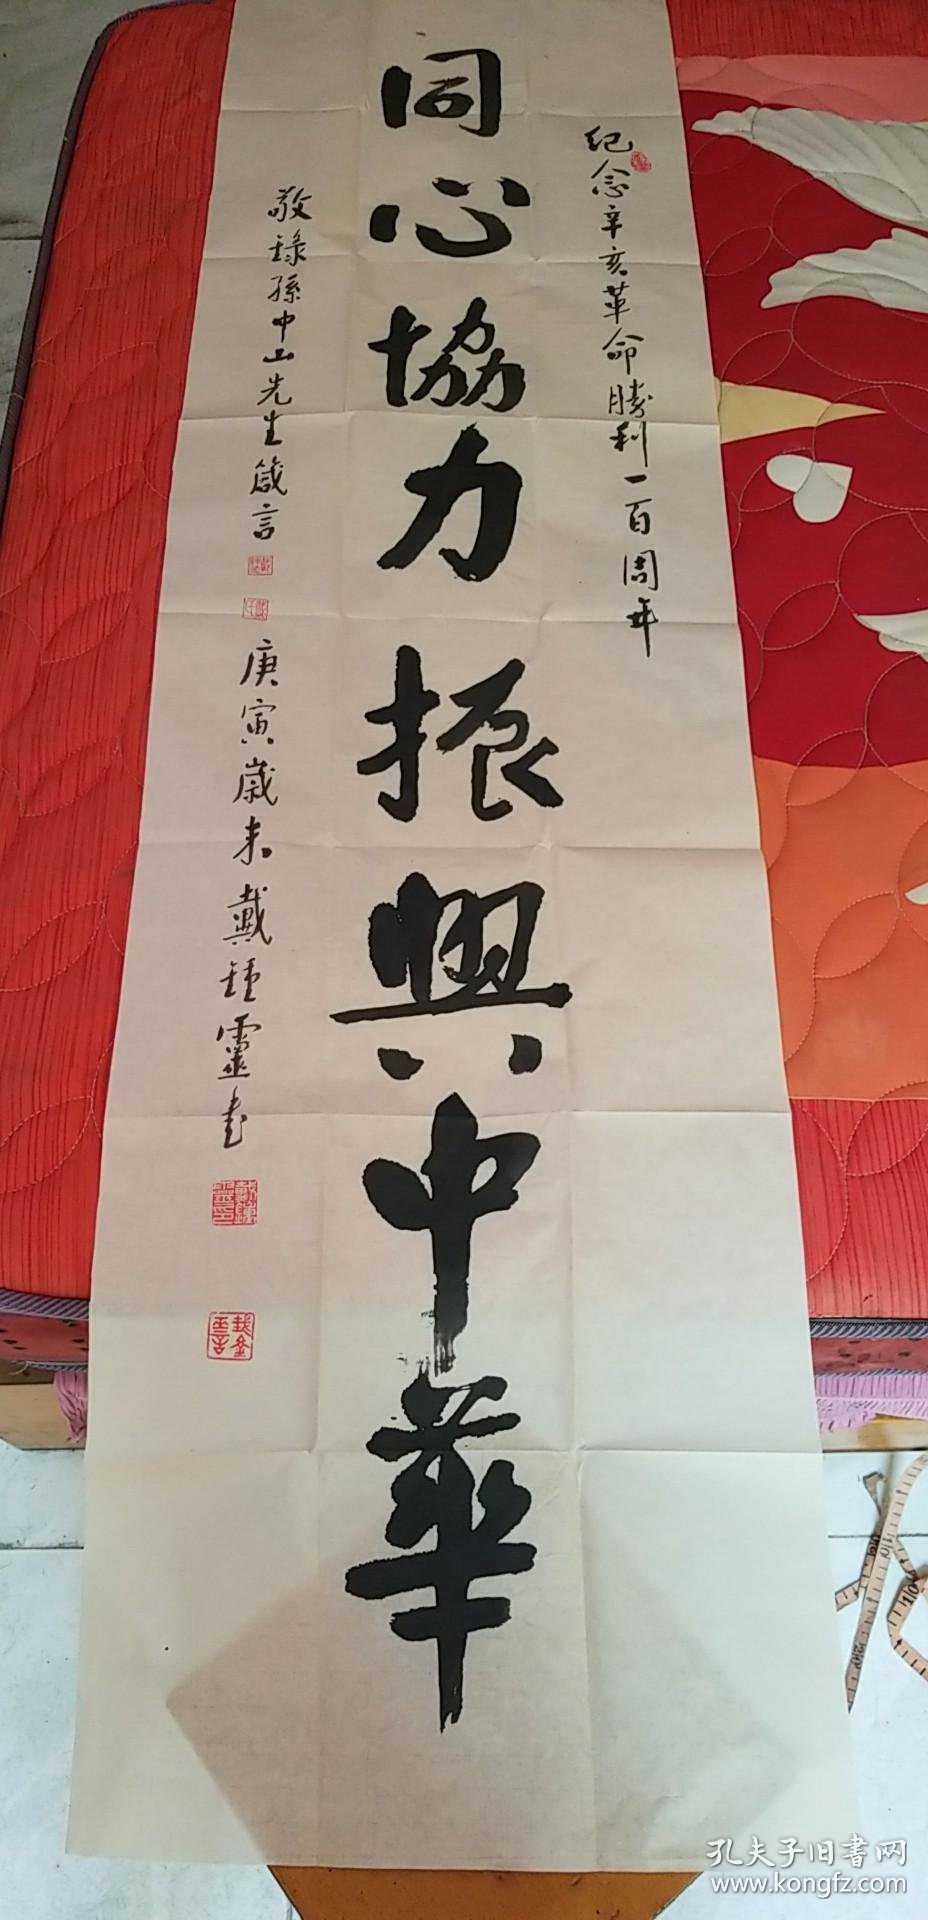 纪念辛亥革命勝利一百周年
同心協力振興中華
敬録孫中山先生箴言
庚寅歲末戴鍾靈書
孔夫子旧書网
www.kongfz.com